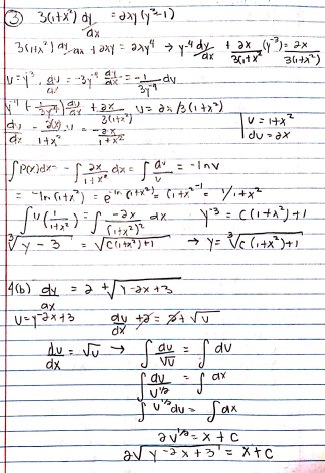 ③ 3(1+x²) dy/dx = 2xy(y³-1)
3(1+x²) dy/dx + 2xy = 2xy⁴ → y⁻⁴ dy/dx + 2x/3(1+x²) (y⁻³) = 2x/3(1+x²)
v = y⁻³, dv/dx = -3y⁻⁴ dy/dx = -1/3y⁻⁴ dv
y⁻⁴ (-1/3y⁻⁴) dv/dx + 2x/3(1+x²) v = 2x/3(1+x²)
dv/dx - 2(x)/1+x² v = -2x/1+x²
v = 1+x²
dv = 2x
∫P(x)dx = -∫ 2x/1+x² dx = ∫ dv/v = -ln v
= -ln(1+x²) = e^-ln(1+x²) = (1+x²)⁻¹ = 1/1+x²
∫v(1/1+x²) = ∫ -2x/(1+x²)² dx y⁻³ = C(1+x²)+1
³√y-3 = √C(1+x²)+1 → y = ³√C(1+x²)+1
4(b) dy/dx = 2 + √y-2x+3
u = y-2x+3 du/dx + 2 = 2 + √u
du/dx = √u → ∫ du/√u = ∫ du
∫ du/u^1/2 = ∫ dx
∫ u^-1/2 du = ∫ dx
2u^1/2 = x + c
2√y-2x+3 = x + c